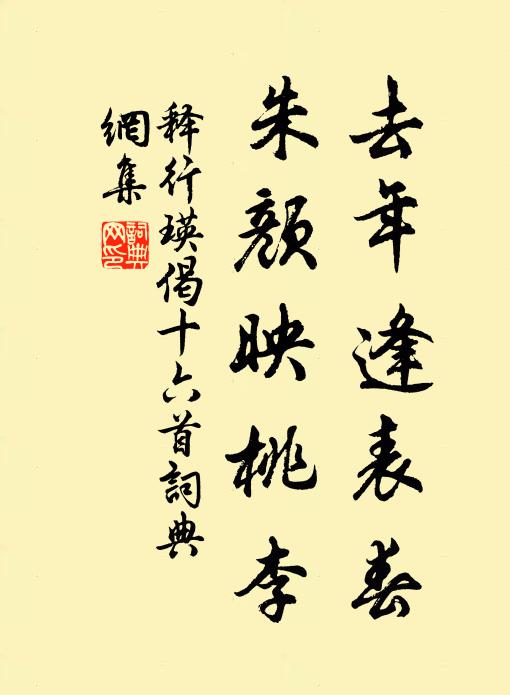 去年逢表春
朱颜映桃李
释行瑛偈十六首詞典
網集
詞典
网印